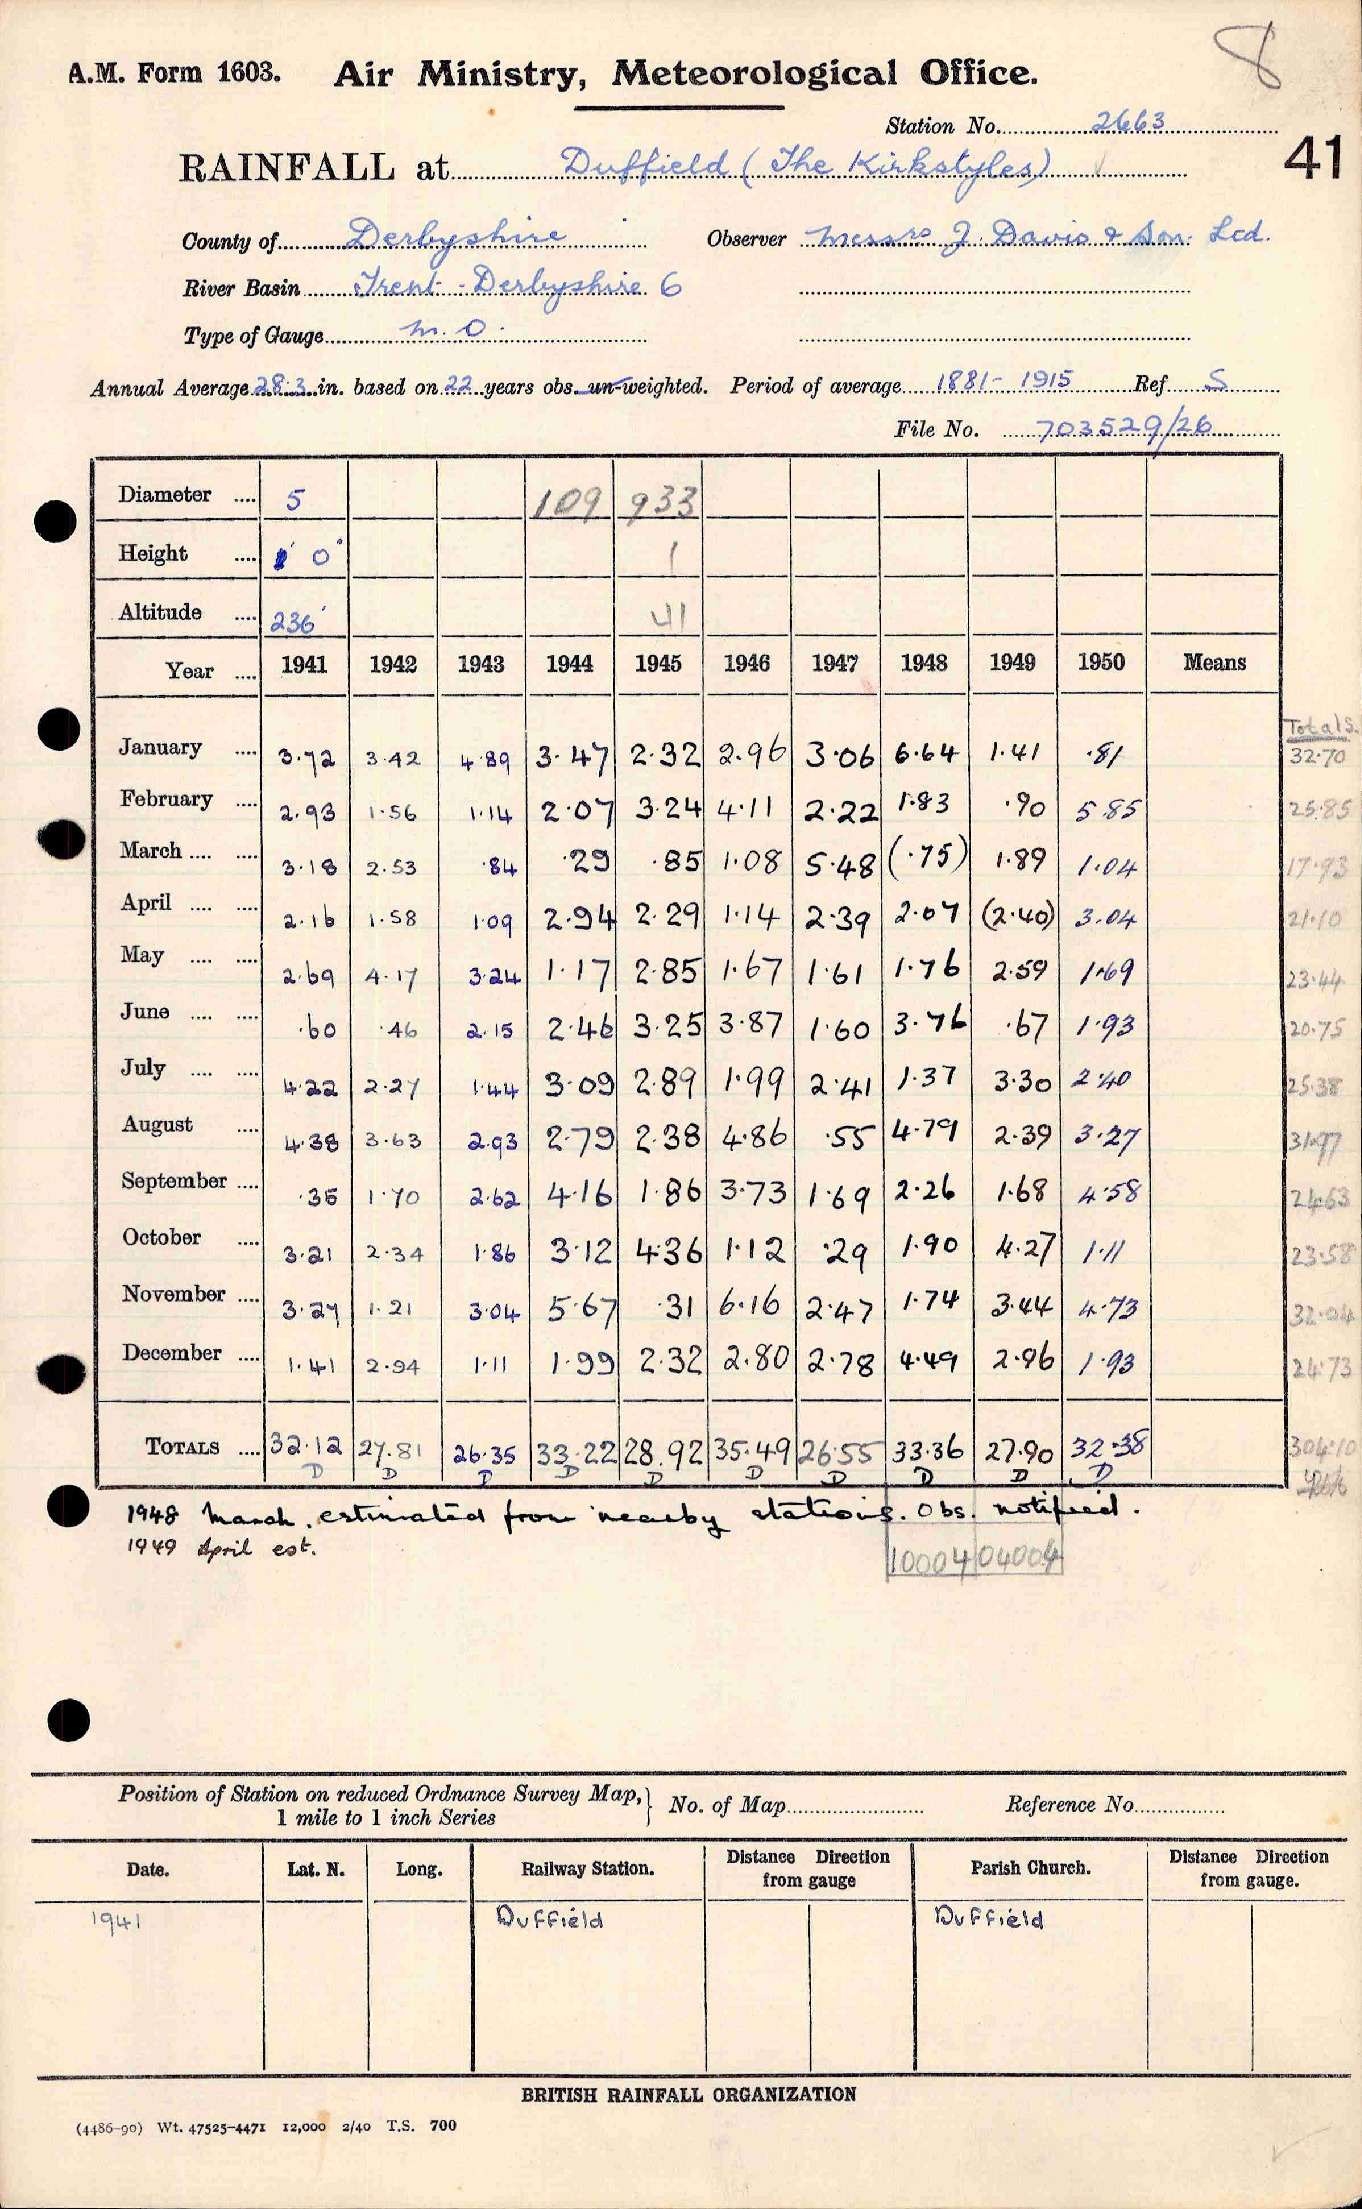 8
A.M. Form 1603. Air Ministry, Meteorological Office.
Station No. 2663
RAINFALL at Duffield (The Kirkstyles) 41
County of Derbyshire Observer Messrs J. Davis & Son. Ltd.
River Basin Trent - Derbyshire 6
Type of Gauge M.O.
Annual Average 28.3 in. based on 22 years obs. un-weighted. Period of average 1881-1915 Ref S
File No. 703529/26
Diameter .... 5 109 933
Height .... 1' 0" 1
Altitude .... 236' 41
Year .... 1941 1942 1943 1944 1945 1946 1947 1948 1949 1950 Means
Totals
January .... 3.72 3.42 4.89 3.47 2.32 2.96 3.06 6.64 1.41 .81 32.70
February .... 2.93 1.56 1.14 2.07 3.24 4.11 2.22 1.83 .90 5.85 25.85
March .... .... 3.18 2.53 .84 .29 .85 1.08 5.48 (.75) 1.89 1.04 17.93
April .... .... 2.16 1.58 1.09 2.94 2.29 1.14 2.39 2.07 (2.40) 3.04 21.10
May .... .... 2.69 4.17 3.24 1.17 2.85 1.67 1.61 1.76 2.59 1.69 23.44
June .... .... .60 .46 2.15 2.46 3.25 3.87 1.60 3.76 .67 1.93 20.75
July .... .... 4.22 2.27 1.44 3.09 2.89 1.99 2.41 1.37 3.30 2.40 25.38
August .... 4.38 3.63 2.93 2.79 2.38 4.86 .55 4.79 2.39 3.27 31.97
September .... .35 1.70 2.62 4.16 1.86 3.73 1.69 2.26 1.68 4.58 24.63
October .... 3.21 2.34 1.86 3.12 4.36 1.12 .29 1.90 4.27 1.11 23.58
November .... 3.27 1.21 3.04 5.67 .31 6.16 2.47 1.74 3.44 4.73 32.04
December .... 1.41 2.94 1.11 1.99 2.32 2.80 2.78 4.49 2.96 1.93 24.73
TOTALS .... 32.12 27.81 26.35 33.22 28.92 35.49 26.55 33.36 27.90 32.38 304.10
D D D D D D D D D D
1948 March. estimated from nearby stations. Obs. notified.
1949 April est.
10004 04004
Position of Station on reduced Ordnance Survey Map,} No. of Map Reference No.
1 mile to 1 inch Series
Date. Lat. N. Long. Railway Station. Distance Direction from gauge Parish Church. Distance Direction from gauge.
1941 Duffield Duffield
BRITISH RAINFALL ORGANIZATION
(4486-90) Wt. 47525-4471 12,000 2/40 T.S. 700